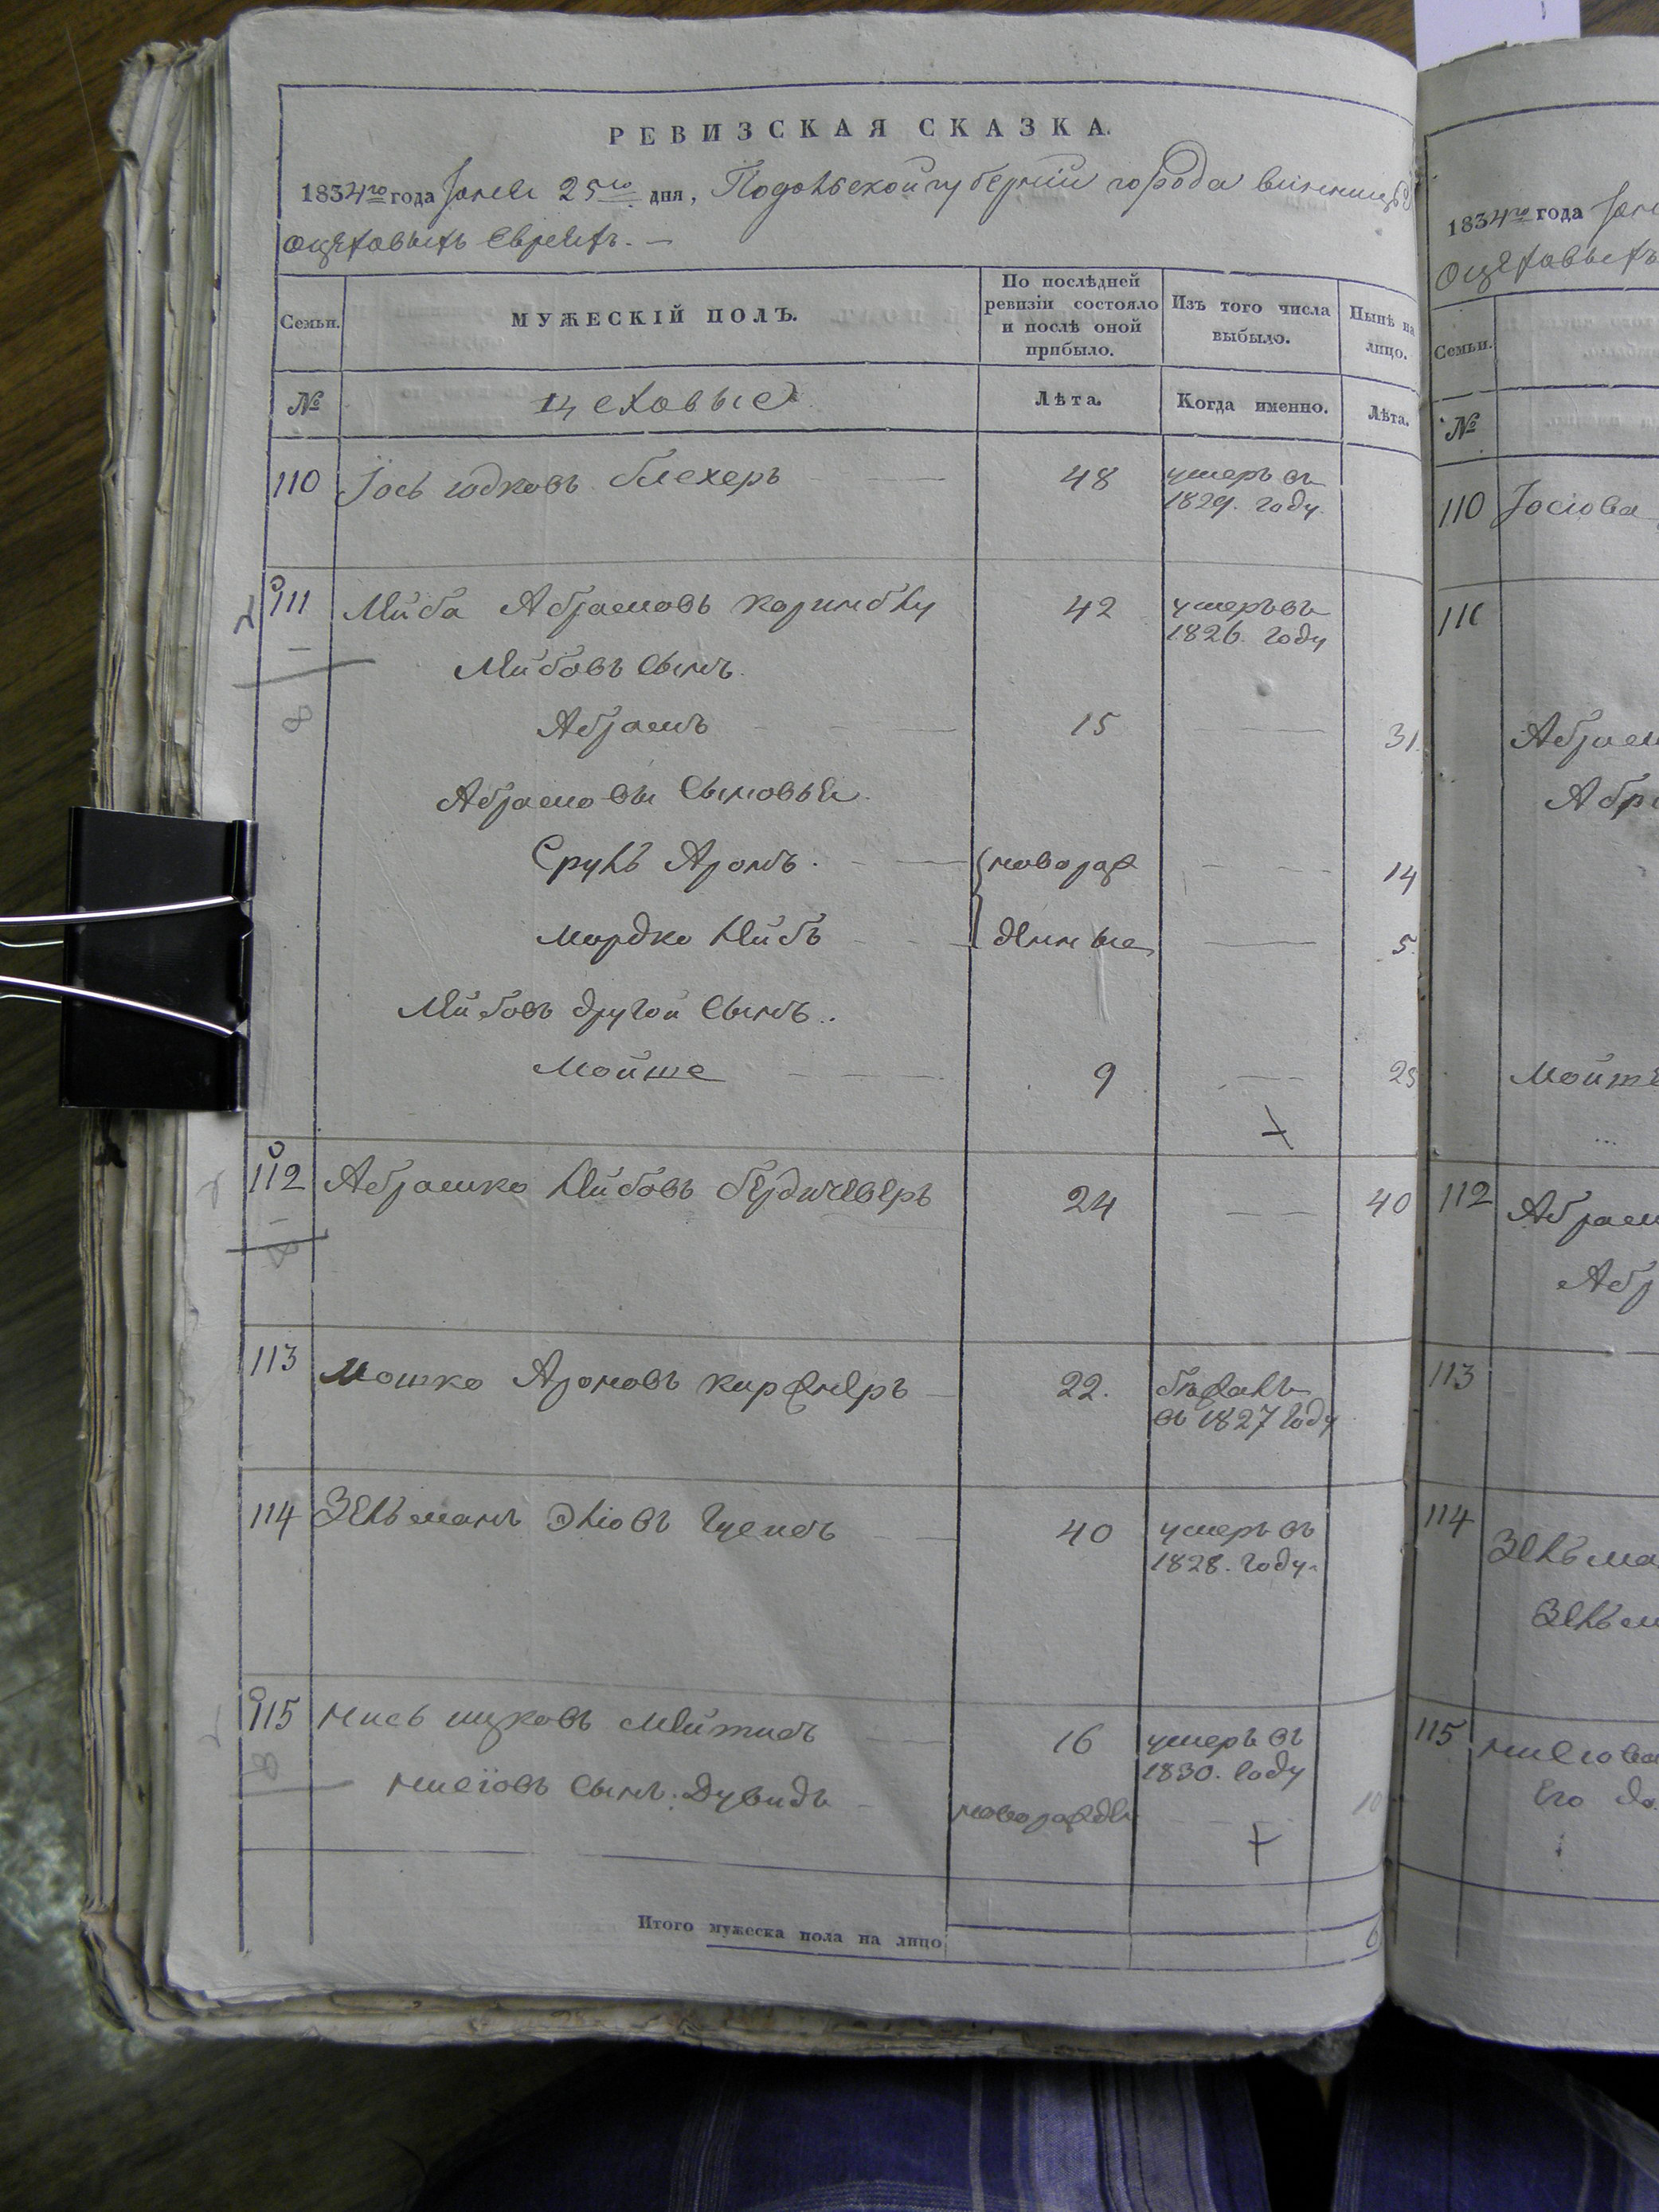 РЕВИЗСКАЯ СКАЗКА.
1834го года Іюня 25го дня, Подольской губерніи города Винницы
о цеховыхъ Евреяхъ. —
Семьи.
МУЖЕСКІЙ ПОЛЪ.
По послѣдней ревизіи состояло и послѣ оной прибыло.
Изъ того числа выбыло.
Нынѣ на лицо.
№
цеховые
Лѣта.
Когда именно.
Лѣта.
110 Іось Юдковъ Блехеръ 48 умеръ въ
1829. году.
111 Лейба Абрамовъ 42 умеръ въ
1826. году
Лейбовъ сынъ.
Абрамъ 15 31.
Абрамовы сыновья.
Сруль Аронъ. новорож 14
Мордко Лейбъ денные 5.
Лейбовъ другой сынъ.
Мойше 9 25
112 Абрамко Лейбовъ Бердичеверъ 24 40
113 Мошко Ароновъ Киржнеръ 22. бѣжалъ
въ 1827 году
114 Зельманъ Эліовъ 40 умеръ въ
1828. году.
115 Нись Ицковъ 16 умеръ въ
1830. году
Нисіовъ сынъ. Дувидъ новорожде 10
Итого мужеска пола на лицо 6
1834го года
о цеховыхъ
Семьи.
№
110 Іосіова
111
Абрам
Абра
Мойше
112 Абрам
Абр
113
114
Зельма
Зельм
115 Нисіова
Его